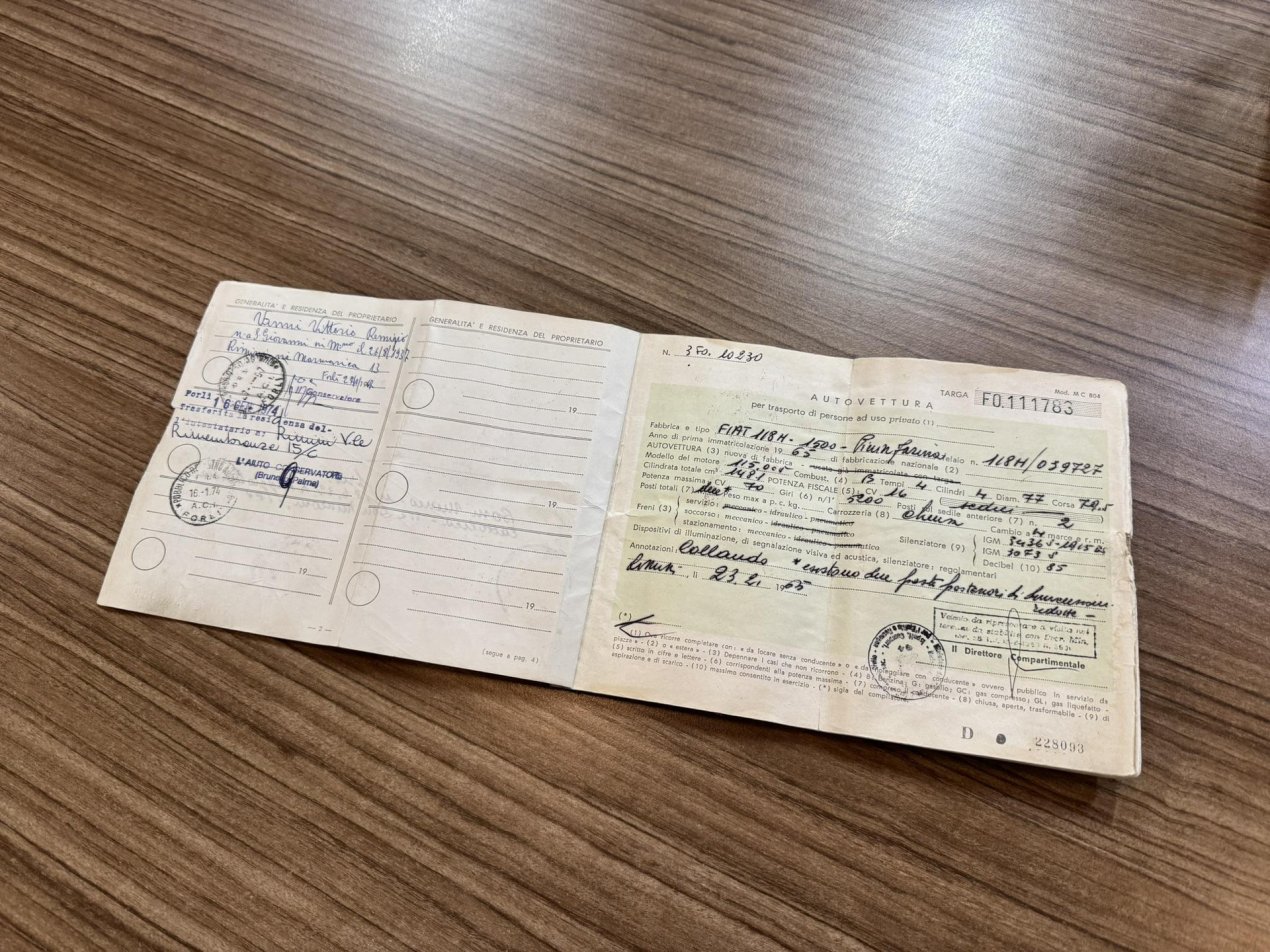 GENERALITA' E RESIDENZA DEL PROPRIETARIO
Vanni Vittorio Remigio
n. a S. Giovanni in M.no il 26/8/1937
Rimini Marmarica 13
Forlì
Il Conservatore
Forlì 16 GEN. 1974
Trasferita la residenza del-
l'intestatario a: Rimini V.le
Rimembranze 15/C
L'AIUTO CONSERVATORE
(Bruno Palma)
16.1.74
A.C.I.
FORLI
19
— 2 —
GENERALITA' E RESIDENZA DEL PROPRIETARIO
19
19
19
(segue a pag. 4)
N. 3 Fo. 10230
Mod. M C 804
AUTOVETTURA
TARGA FO.111783
per trasporto di persone ad uso privato (1)
Fabbrica e tipo FIAT 118H - 1500 - Pininfarina Telaio n. 118H/039727
Anno di prima immatricolazione 1965 di fabbricazione nazionale (2)
AUTOVETTURA (3) nuova di fabbrica - usata già immatricolata targa
Modello del motore 115.005 Combust. (4) B Tempi 4 Cilindri 4 Diam. 77 Corsa 79.5
Cilindrata totale cm³ 1481 POTENZA FISCALE (5) CV 16 (sedici)
Potenza massima CV 70 Giri (6) n/1' 5200 Posti sul sedile anteriore (7) n. 2
Posti totali (7) due* Peso max a p. c. kg. Carrozzeria (8) chiusa Cambio a 4 marce e r. m.
Freni (3) servizio: meccanico - idraulico - pneumatico
soccorso: meccanico - idraulico - pneumatico
stazionamento: meccanico - idraulico - pneumatico
Silenziatore (9) IGM
IGM 1073 S
Decibel (10) 85
Dispositivi di illuminazione, di segnalazione visiva ed acustica, silenziatore: regolamentari
Annotazioni: Collaudo * esistono due posti posteriori di dimensioni
ridotte -
Rimini, li 23.2. 1965
Il Direttore Compartimentale
(*)
(1) Ove ricorre completare con: « da locare senza conducente » o « da noleggiare con conducente » ovvero « pubblico in servizio da
piazza » - (2) o « estera » - (3) Depennare i casi che non ricorrono - (4) B: benzina; G: gasolio; GC: gas compresso; GL: gas liquefatto -
(5) scritto in cifre e lettere - (6) corrispondenti alla potenza massima - (7) compreso il conducente - (8) chiusa, aperta, trasformabile - (9) di
aspirazione e di scarico - (10) massimo consentito in esercizio - (*) sigla del compilatore.
D 228093